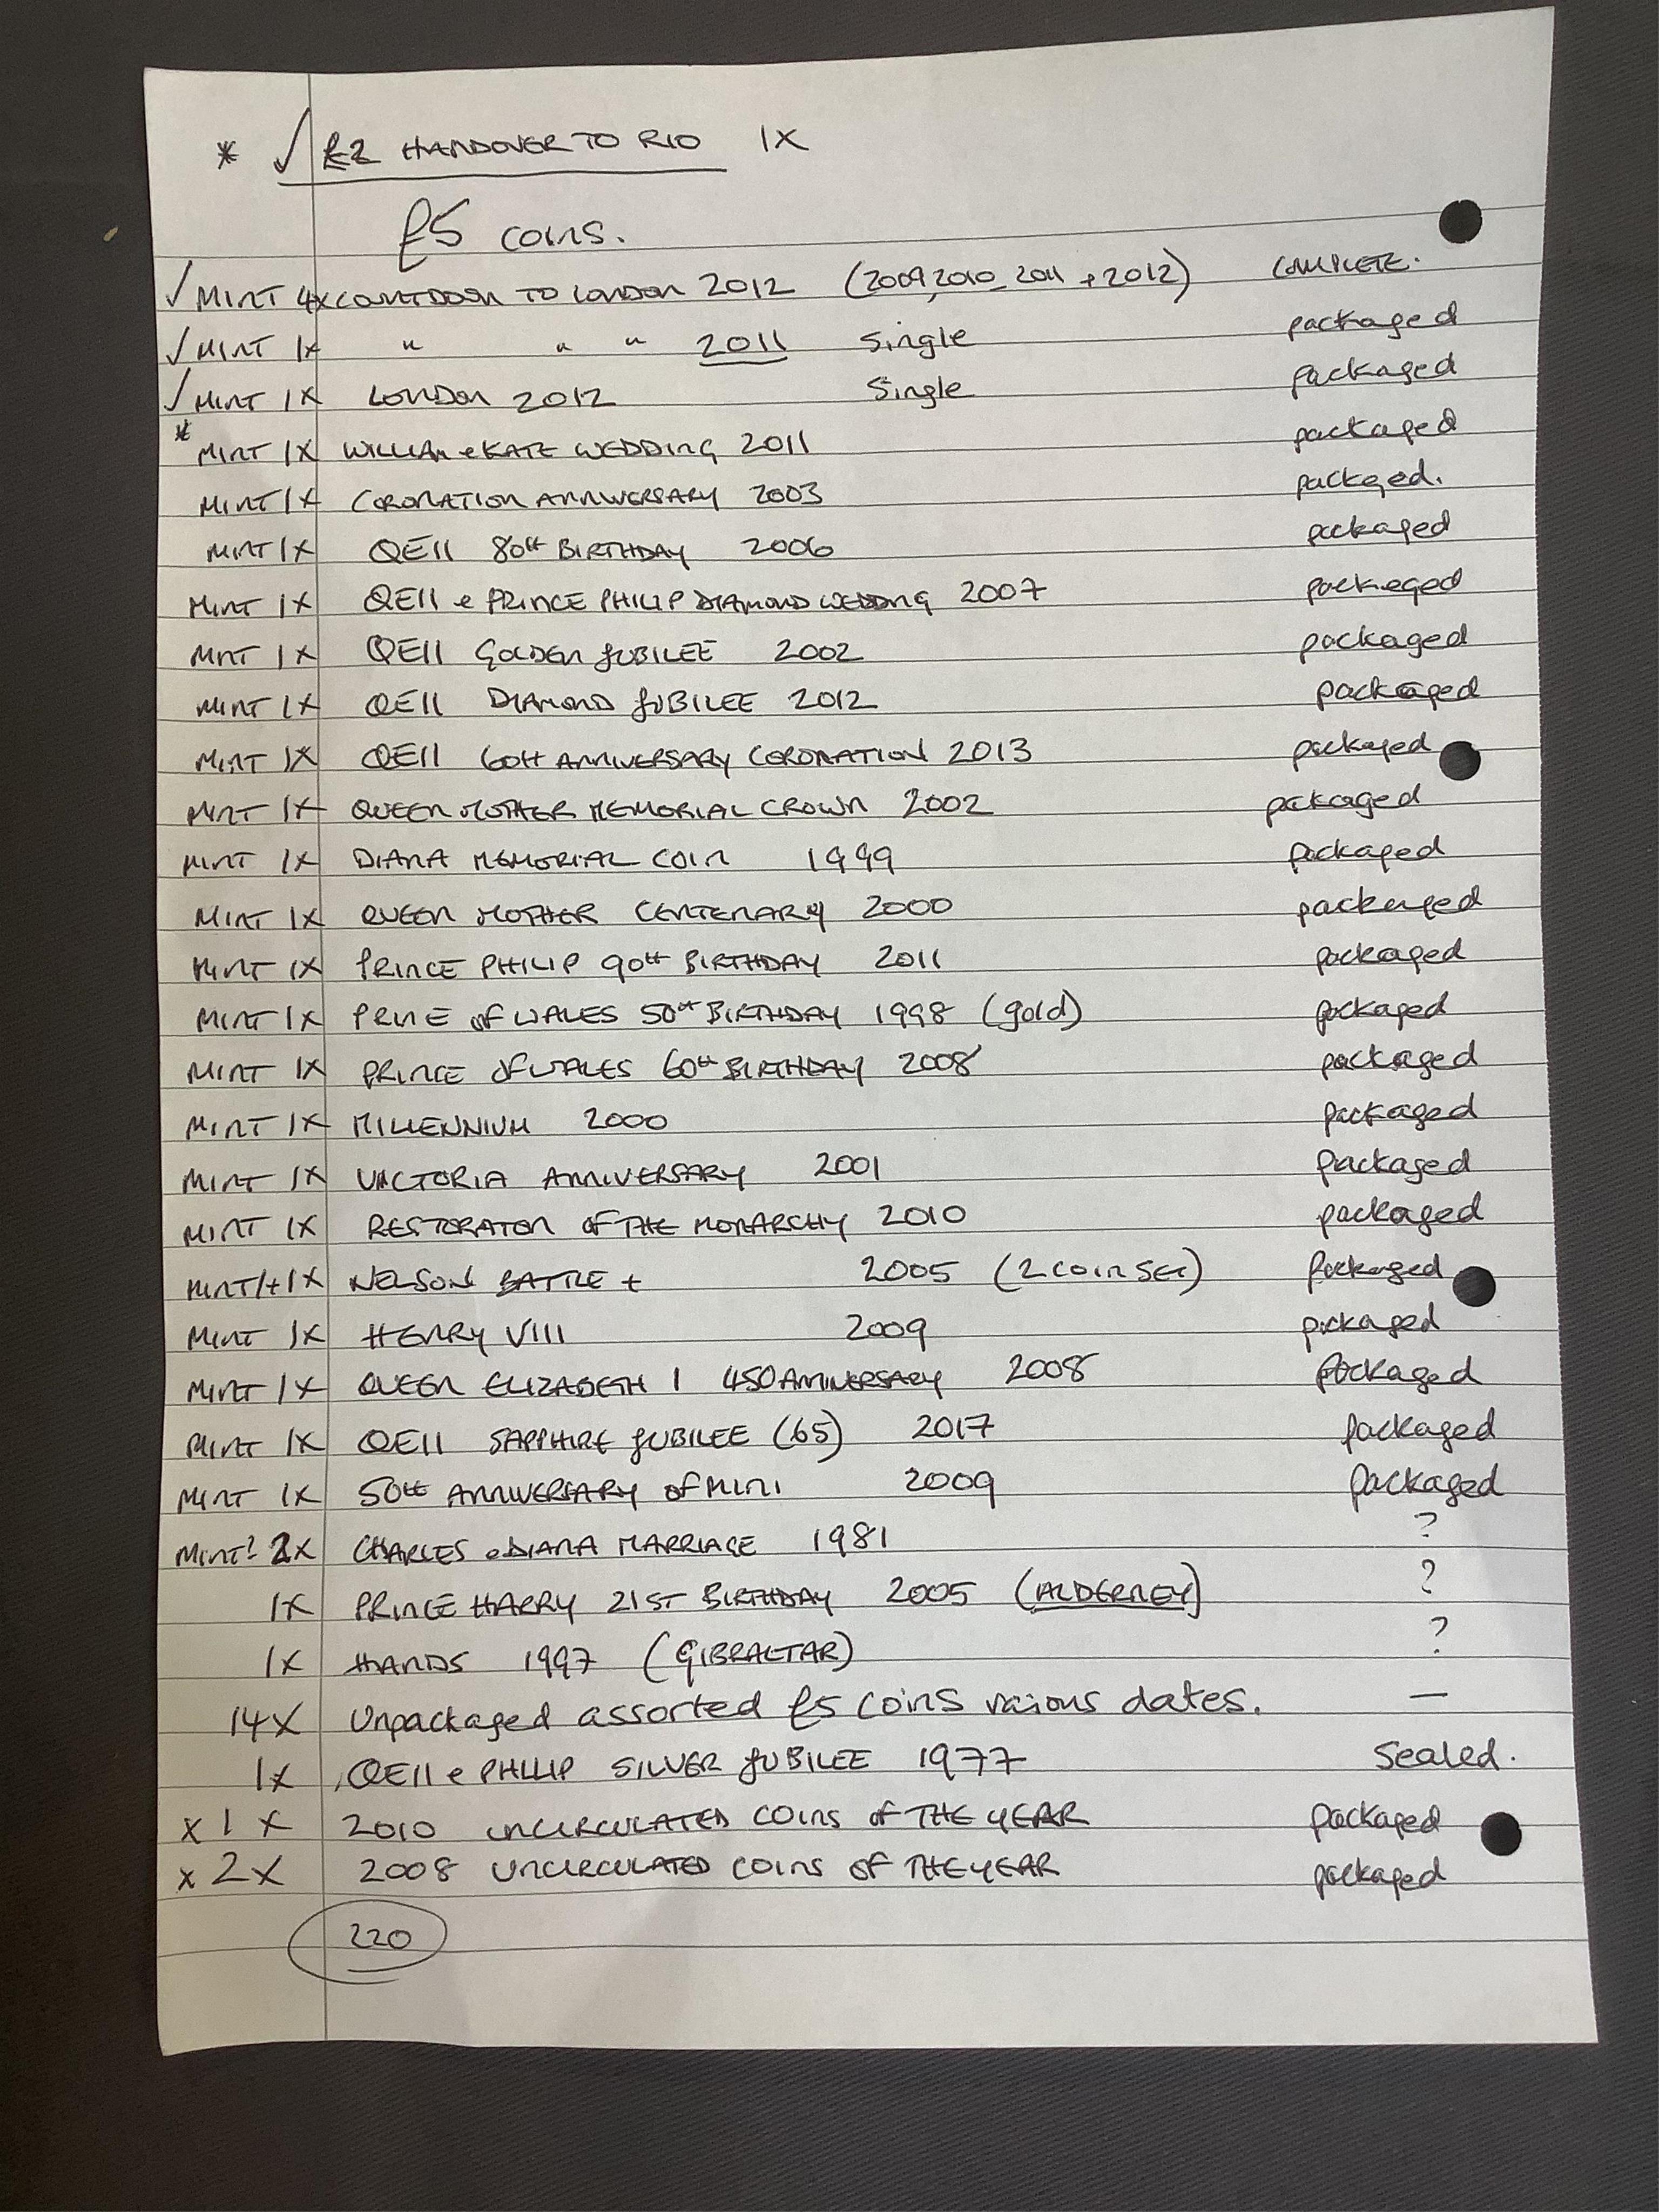 * ✓ £2 HANDOVER TO RIO 1X
£5 COINS.
✓ MINT 4X COUNTDOWN TO LONDON 2012 (2009, 2010, 2011 + 2012) COMPLETE.
✓ MINT 1X " " " 2011 Single packaged
✓ MINT 1X LONDON 2012 Single packaged
* MINT 1X WILLIAM & KATE WEDDING 2011 packaged
MINT 1X CORONATION ANNIVERSARY 2003 packaged.
MINT 1X QEII 80th BIRTHDAY 2006 packaged
MINT 1X QEII & PRINCE PHILIP DIAMOND WEDDING 2007 packaged
MINT 1X QEII GOLDEN JUBILEE 2002 packaged
MINT 1X QEII DIAMOND JUBILEE 2012 packaged
MINT 1X QEII 60TH ANNIVERSARY CORONATION 2013 packaged
MINT 1X QUEEN MOTHER MEMORIAL CROWN 2002 packaged
MINT 1X DIANA MEMORIAL COIN 1999 packaged
MINT 1X QUEEN MOTHER CENTENARY 2000 packaged
MINT 1X PRINCE PHILIP 90th BIRTHDAY 2011 packaged
MINT 1X PRINCE OF WALES 50th BIRTHDAY 1998 (gold) packaged
MINT 1X PRINCE OF WALES 60th BIRTHDAY 2008 packaged
MINT 1X MILLENNIUM 2000 packaged
MINT 1X VICTORIA ANNIVERSARY 2001 packaged
MINT 1X RESTORATION OF THE MONARCHY 2010 packaged
MINT 1+1X NELSON BATTLE + 2005 (2 COIN SET) Packaged
MINT 1X HENRY VIII 2009 packaged
MINT 1X QUEEN ELIZABETH I 450 ANNIVERSARY 2008 Packaged
MINT 1X QEII SAPPHIRE JUBILEE (65) 2017 packaged
MINT 1X 50th ANNIVERSARY OF MINI 2009 Packaged
MINT? 2X CHARLES & DIANA MARRIAGE 1981 ?
1X PRINCE HARRY 21ST BIRTHDAY 2005 (ALDERNEY) ?
1X HANDS 1997 (GIBRALTAR) ?
14X Unpackaged assorted £5 coins various dates. —
1X QEII & PHILIP SILVER JUBILEE 1977 Sealed.
x 1 X 2010 UNCIRCULATED COINS OF THE YEAR packaged
x 2X 2008 UNCIRCULATED COINS OF THE YEAR packaged
220